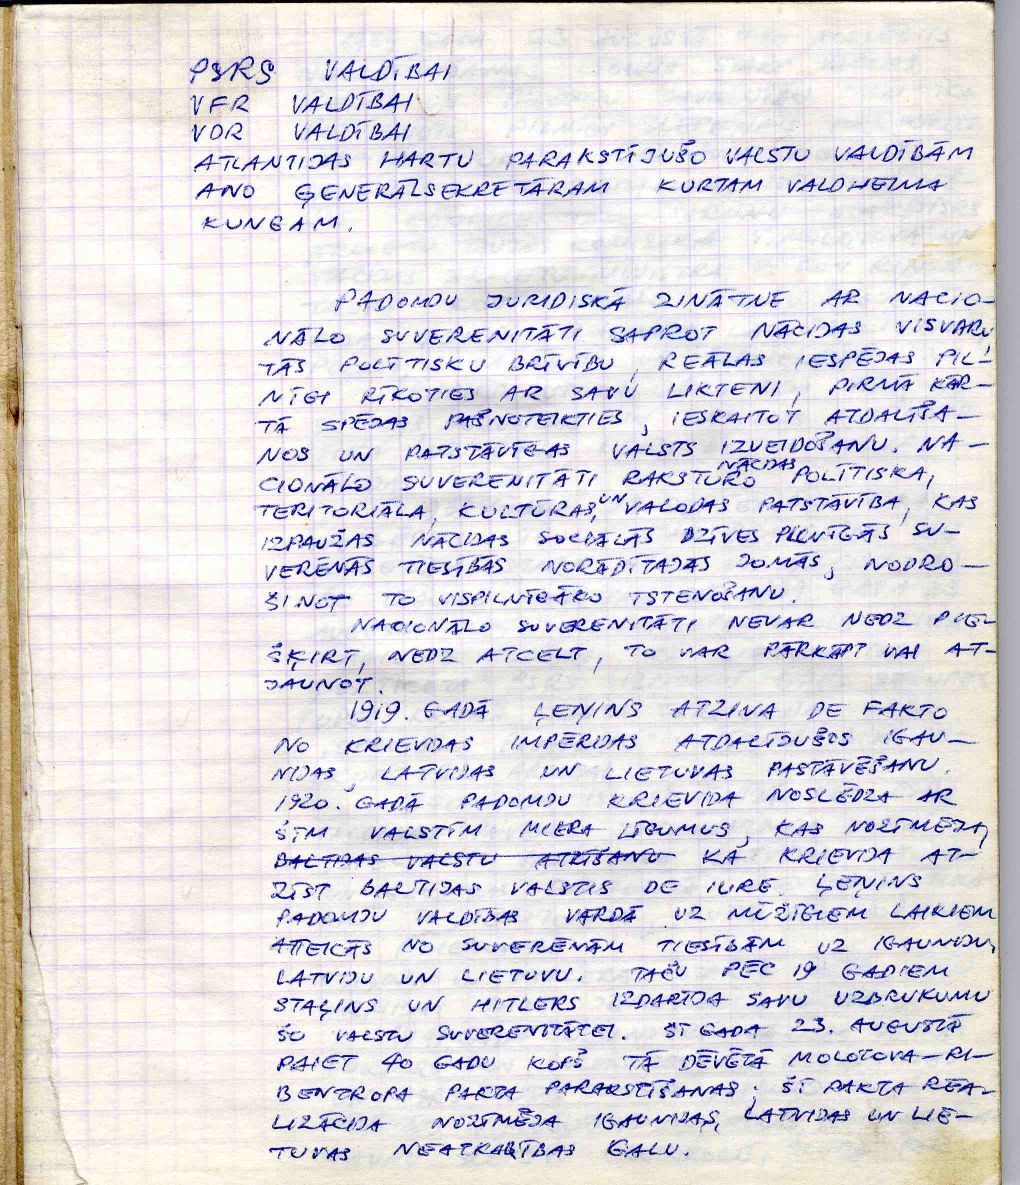 PSRS VALDĪBAI
VFR VALDĪBAI
VDR VALDĪBAI
ATLANTIJAS HARTU PARAKSTĪJUŠO VALSTU VALDĪBĀM
ANO ĢENERĀLSEKRETĀRAM KURTAM VALDHEIMA
KUNGAM.
PADOMJU JURIDISKĀ ZINĀTNE AR NACIO-
NĀLO SUVERENITĀTI SAPROT NĀCIJAS VISVARU,
TĀS POLĪTISKU BRĪVĪBU, REĀLAS IESPĒJAS PIL-
NĪGI RĪKOTIES AR SAVU LIKTENI, PIRMĀ KĀR-
TĀ SPĒJAS PAŠNOTEIKTIES, IESKAITOT ATDALĪŠA-
NOS UN PATSTĀVĪGAS VALSTS IZVEIDOŠANU. NA-
CIONĀLO SUVERENITĀTI RAKSTURO NĀCIJAS POLĪTISKA,
TERITORIĀLA, KULTŪRAS, UN VALODAS PATSTĀVĪBA, KAS
IZPAUŽAS NĀCIJAS SOCIĀLĀS DZĪVES PILNĪGĀS SU-
VERĒNĀS TIESĪBĀS NORĀDĪTAJĀS JOMĀS, NODRO-
ŠINOT TO VISPILNĪGĀKO ĪSTENOŠANU.
NACIONĀLO SUVERENITĀTI NEVAR NEDZ PIEŠ-
ŠĶIRT, NEDZ ATCELT, TO VAR PĀRKĀPT VAI AT-
JAUNOT.
1919. GADĀ ĻEŅINS ATZINA DE FAKTO
NO KRIEVIJAS IMPĒRIJAS ATDALĪJUŠOS IGAU-
NIJAS, LATVIJAS UN LIETUVAS PASTĀVĒŠANU.
1920. GADĀ PADOMJU KRIEVIJA NOSLĒDZA AR
ŠĪM VALSTĪM MIERA LĪGUMUS, KAS NOZĪMĒJA,
BALTIJAS VALSTU ATZĪŠANU KA KRIEVIJA AT-
ZĪST BALTIJAS VALSTIS DE IURE. ĻEŅINS
PADOMJU VALDĪBAS VĀRDĀ UZ MŪŽĪGIEM LAIKIEM
ATTEICĀS NO SUVERĒNĀM TIESĪBĀM UZ IGAUNIJU,
LATVIJU UN LIETUVU. TAČU PĒC 19 GADIEM
STAĻINS UN HITLERS IZDARĪJA SAVU UZBRUKUMU
ŠO VALSTU SUVERENITĀTEI. ŠĪ GADA 23. AUGUSTĀ
PAIET 40 GADU KOPŠ TĀ DĒVĒTĀ MOLOTOVA-RI-
BENTROPA PAKTA PARAKSTĪŠANAS; ŠĪ PAKTA REA-
LIZĀCIJA NOZĪMĒJA IGAUNIJAS, LATVIJAS UN LIE-
TUVAS NEATKARĪBAS GALU.